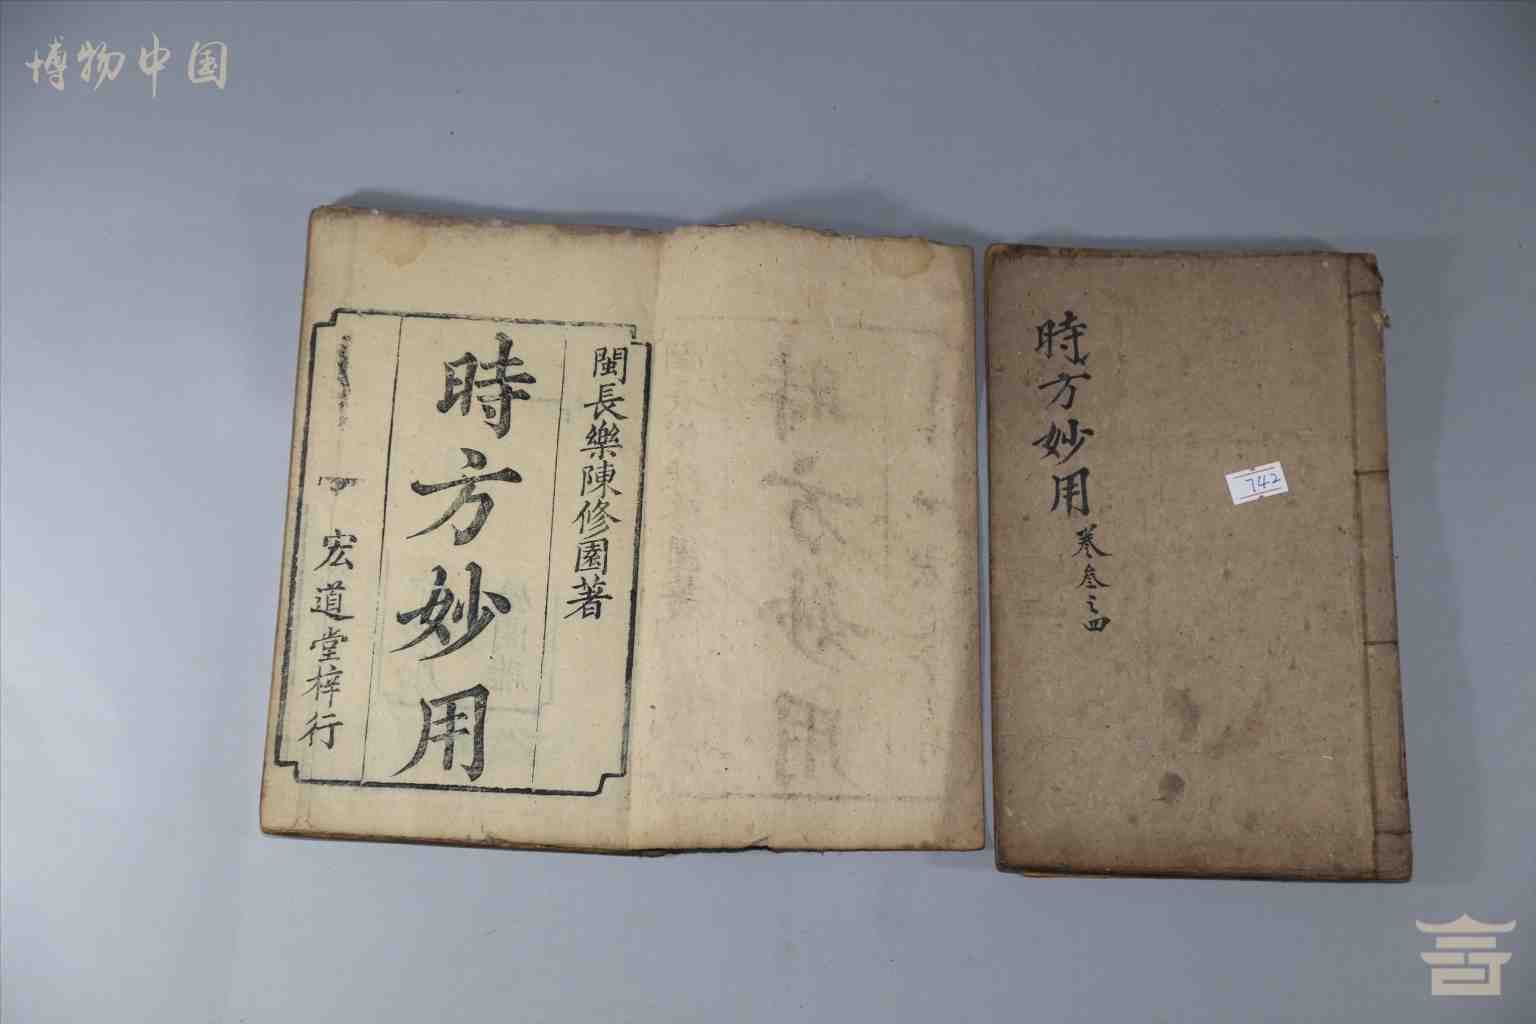 博物中国
閩長樂陳修園著
時方妙用
宏道堂梓行
時方妙用
卷叁之四
742